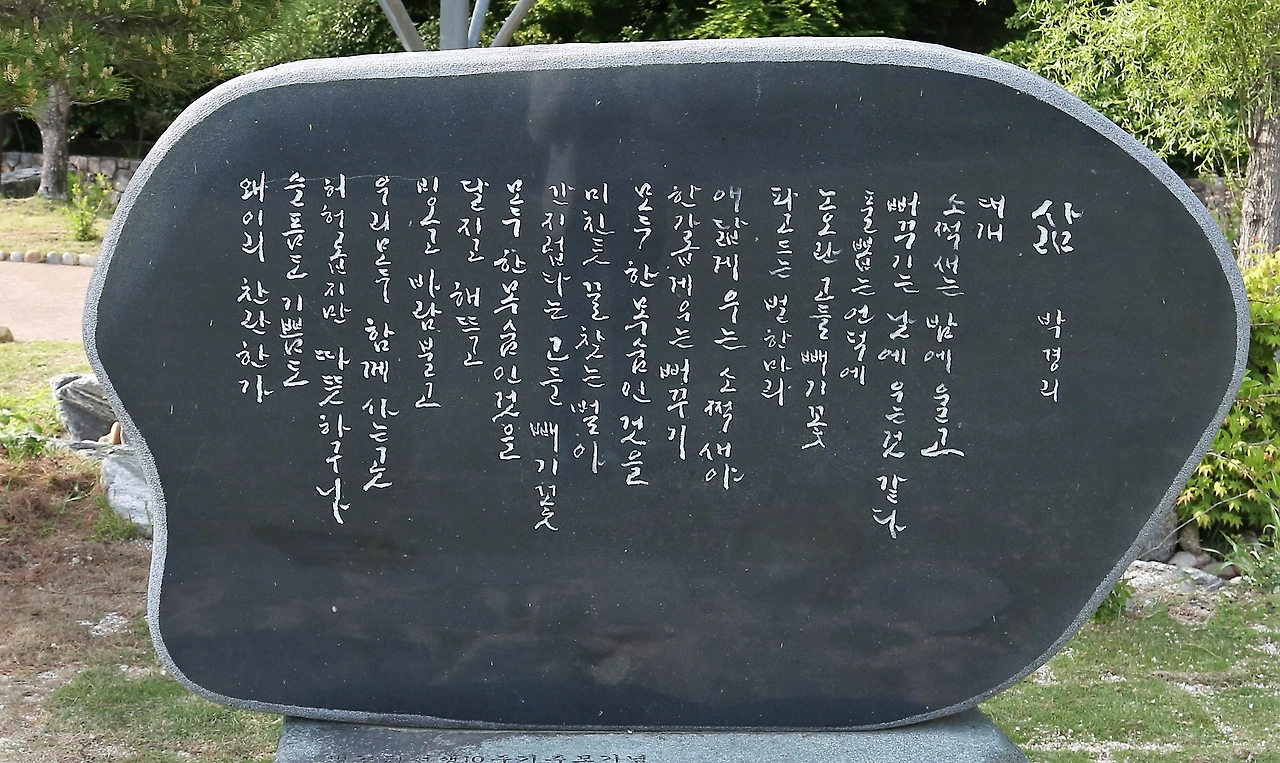 삶
박경리
대개
소쩍새는 밤에 울고
뻐꾸기는 낮에 우는 것 같다
풀 뽑는 언덕에
노오란 고들빼기꽃
파고드는 벌 한마리
애닯게 우는 소쩍새야
한가롭게 우는 뻐꾸기
모두 한 목숨인 것을
미친듯 꿀 찾는 벌아
간지럽다는 고들빼기꽃
모두 한 목숨인 것을
달 지고 해 뜨고
비오고 바람불고
우리 모두 함께 사는 곳
허허롭지만 따뜻하구나
슬픔도 기쁨도
왜 이리 찬란한가